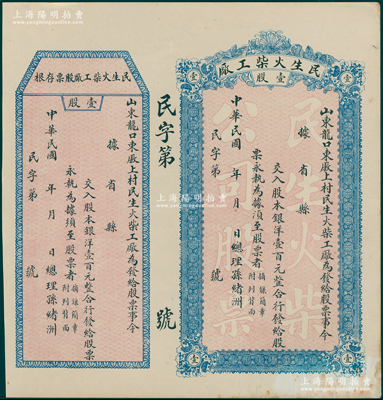 上海阳明拍卖
民生火柴工廠
壹股
壹
壹
山東龍口東廠上村民生火柴工廠為發給股票事今
據 省 縣
交入股本銀洋壹百元整合行發給股
票永執為據須至股票者 摘錄簡章附列背面
中華民國 年 月 日總理孫緒洲
民字第 號
壹
壹
民生火柴
公司股票
民字第 號
民生火柴工廠股票存根
壹股
山東龍口東廠上村民生火柴工廠為發給股票事今
據 省 縣
交入股本銀洋壹百元整合行發給股票
永執為據須至股票者 摘錄簡章附列背面
中華民國 年 月 日總理孫緒洲
民字第 號
上海阳明拍卖